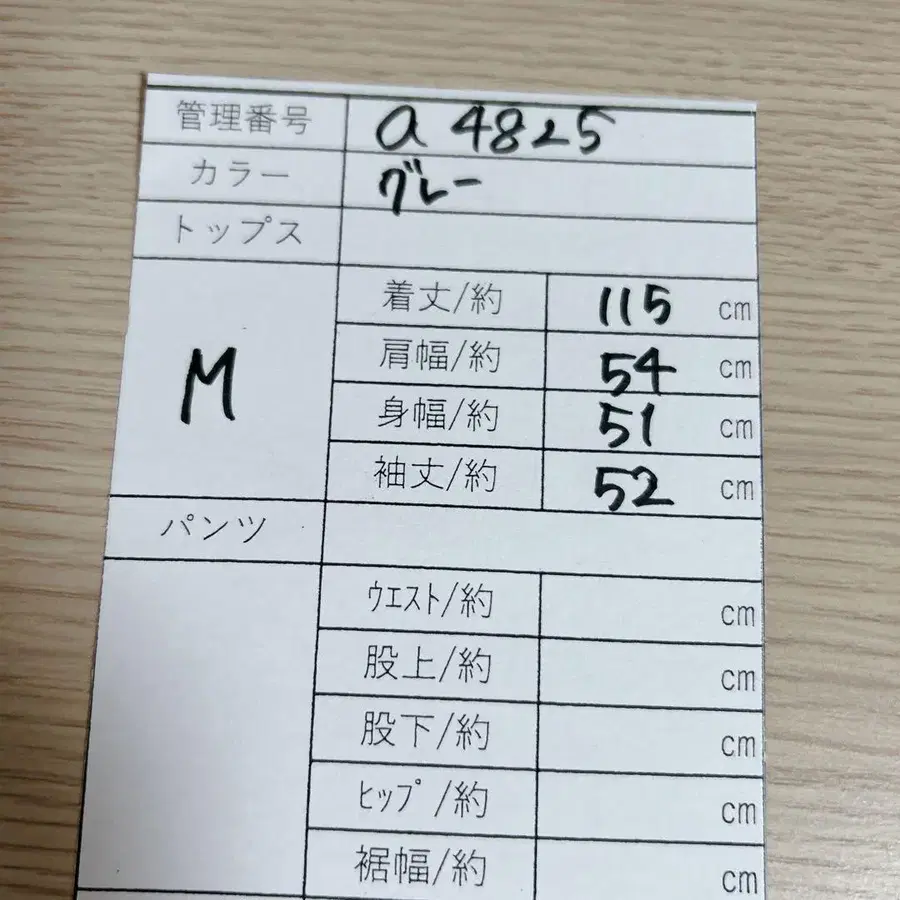 管理番号 a 4825
カラー グレー
トップス
M
着丈/約 115 cm
肩幅/約 54 cm
身幅/約 51 cm
袖丈/約 52 cm
パンツ
ｳｴｽﾄ/約 cm
股上/約 cm
股下/約 cm
ﾋｯﾌﾟ/約 cm
裾幅/約 cm